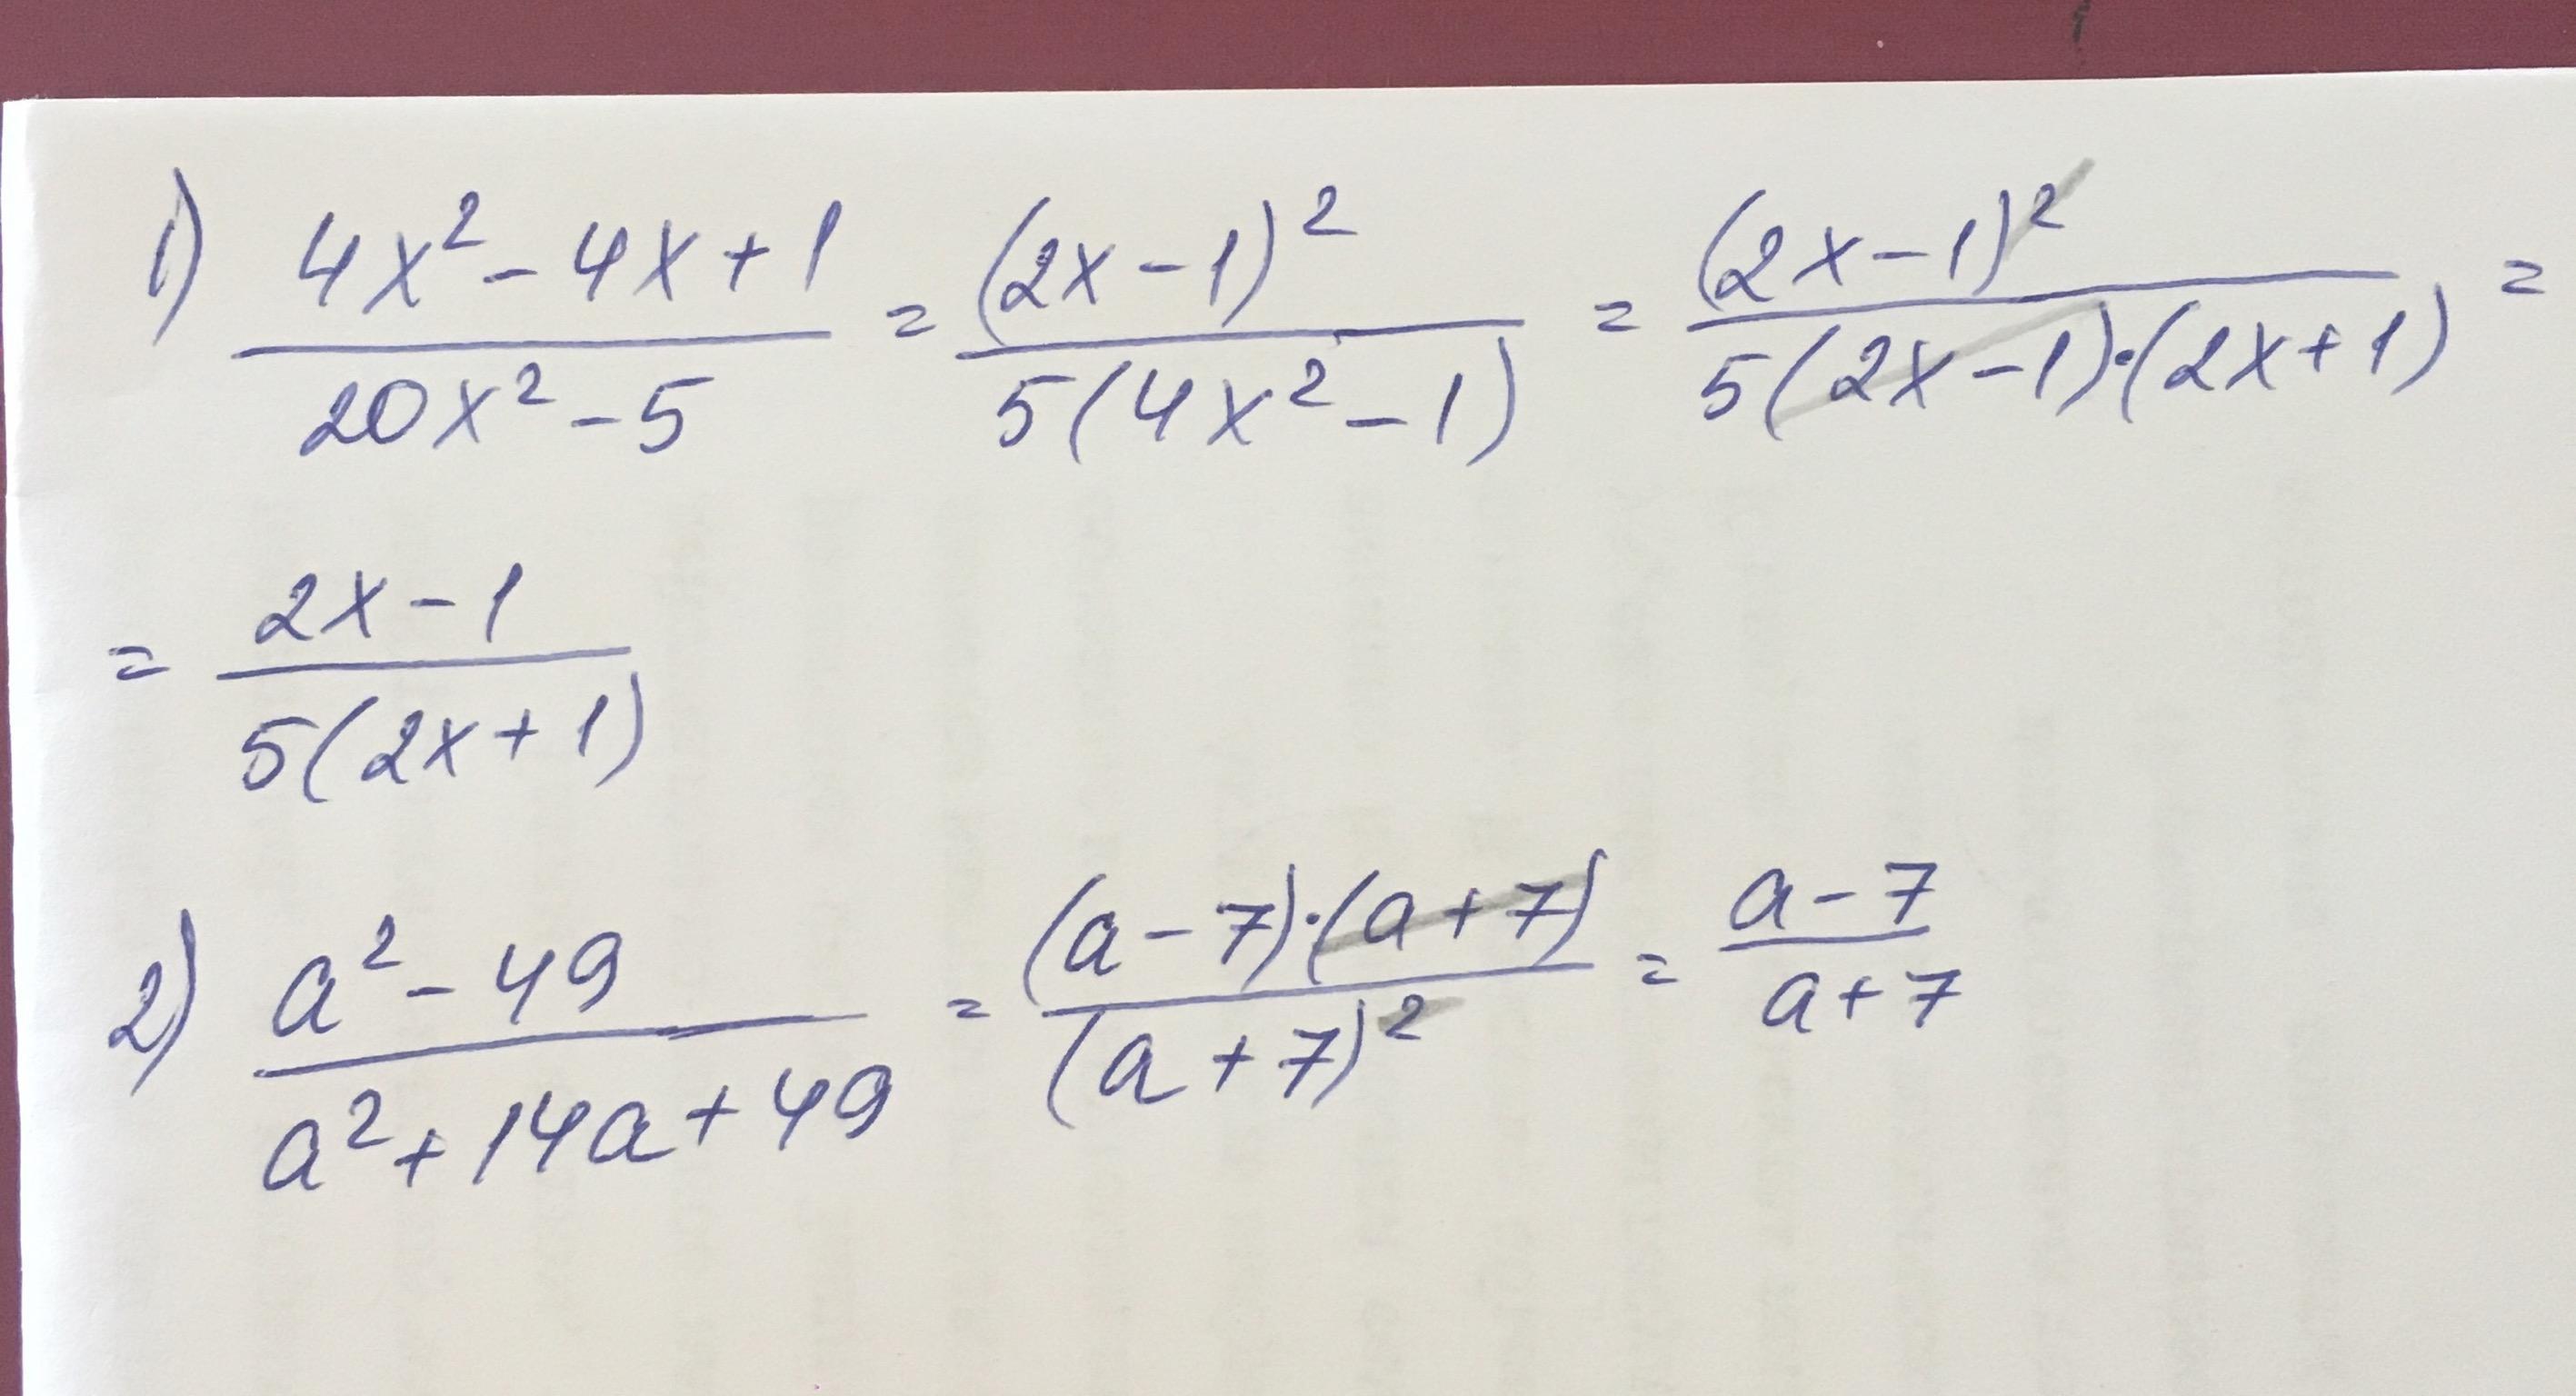 1) (4x² - 4x + 1)/(20x² - 5) = (2x - 1)²/(5(4x² - 1)) = (2x - 1)²/(5(2x - 1)·(2x + 1)) =
= (2x - 1)/(5(2x + 1))
2) (a² - 49)/(a² + 14a + 49) = ((a - 7)·(a + 7))/(a + 7)² = (a - 7)/(a + 7)